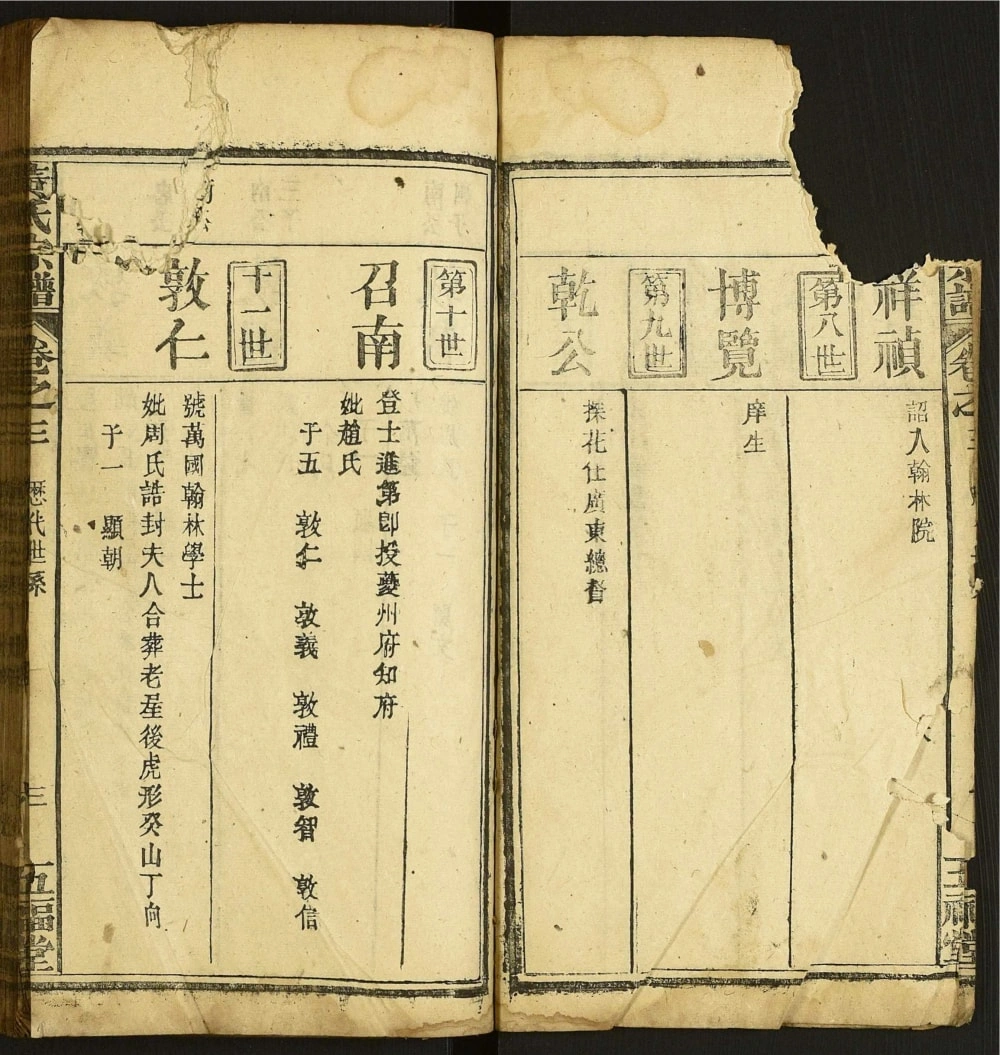 祥禎
詔入翰林院
第八世
博覽
庠生
第九世
乾公
探花仕廣東總督
第十世
召南
登士進第即投夔州府知府
妣趙氏
子五 敦仁 敦義 敦禮 敦智 敦信
十一世
敦仁
號萬國翰林學士
妣周氏誥封夫人合葬老星後虎形癸山丁向
子一 顯朝
氏宗譜 卷之三 歷代世系 三 五福堂